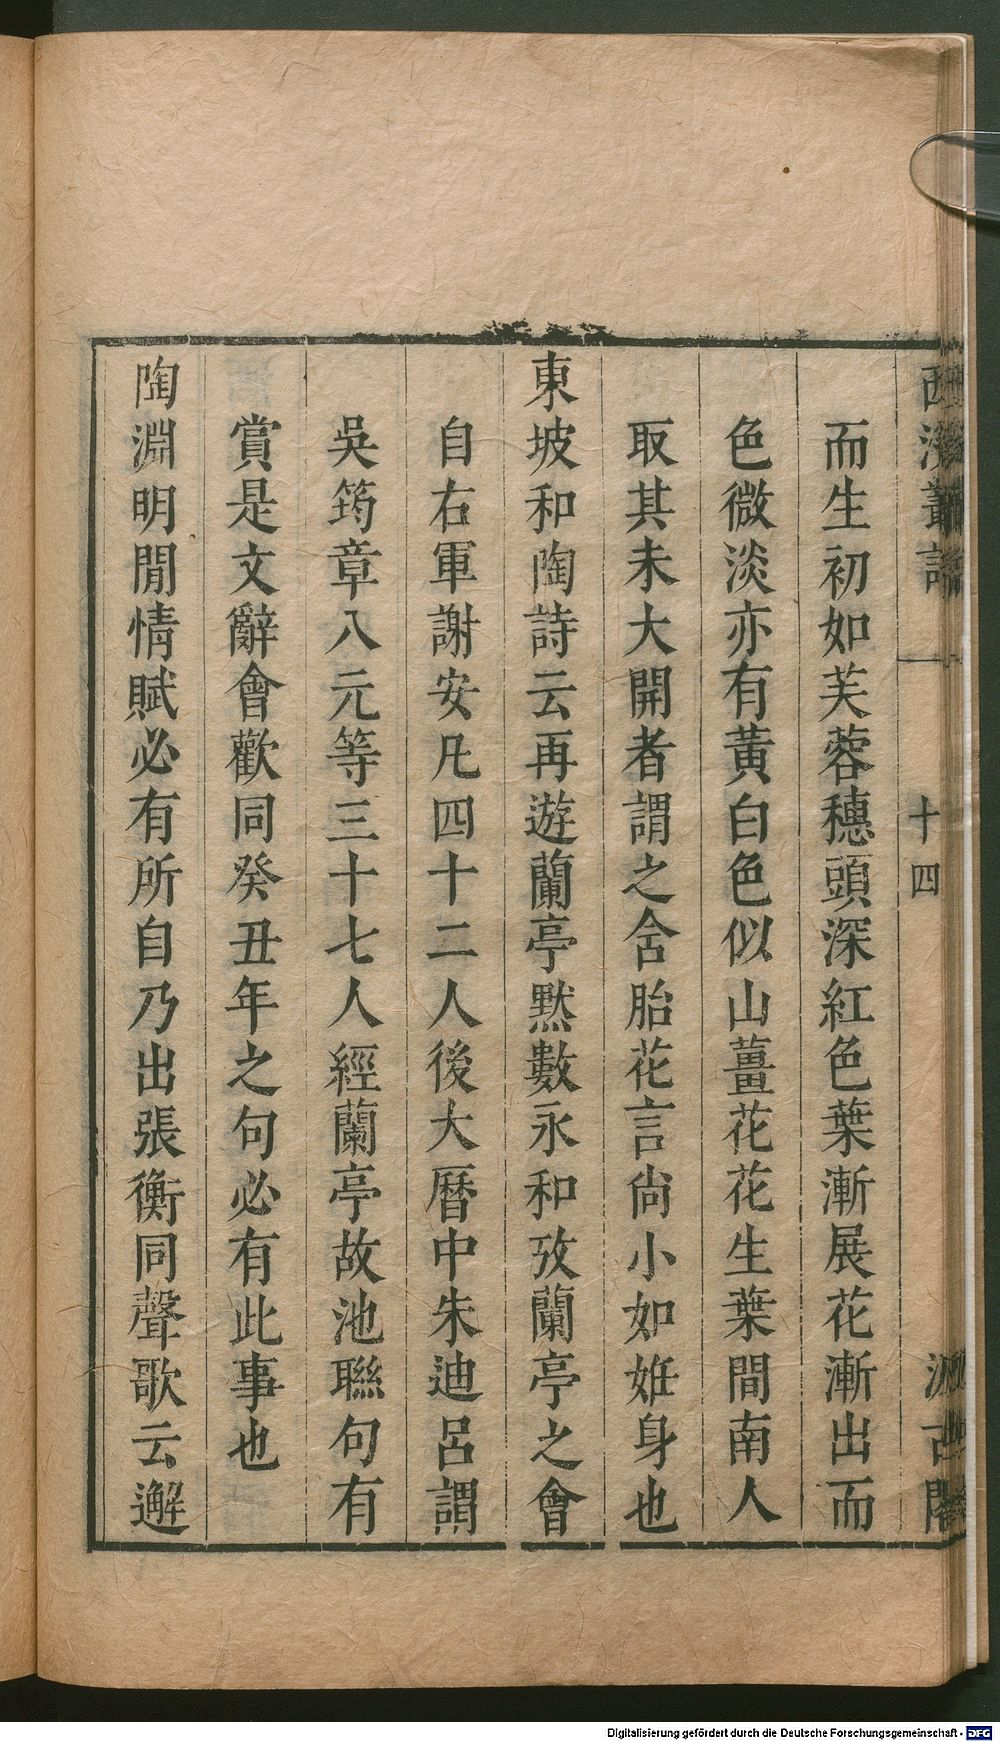 西溪叢語
十四
汲古閣
而生初如芙蓉穗頭深紅色葉漸展花漸出而
色微淡亦有黃白色似山薑花花生葉間南人
取其未大開者謂之含胎花言尙小如姙身也
東坡和陶詩云再遊蘭亭默數永和攷蘭亭之會
自右軍謝安凡四十二人後大曆中朱迪呂謂
吳筠章八元等三十七人經蘭亭故池聯句有
賞是文辭會歡同癸丑年之句必有此事也
陶淵明閒情賦必有所自乃出張衡同聲歌云邂
Digitalisierung gefördert durch die Deutsche Forschungsgemeinschaft - DFG